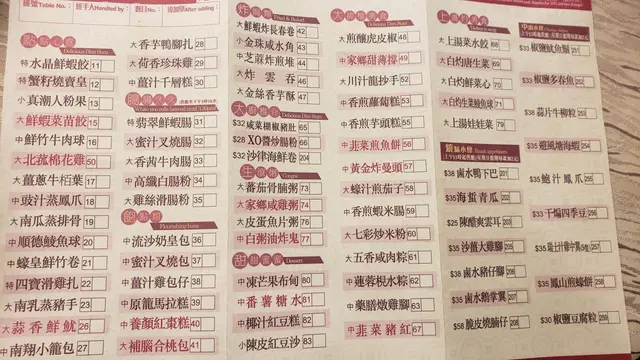 Table No.:
經手人Handled by:
Delicious Dim Sum
特 水晶鮮蝦餃 11
特 蟹籽燒賣皇 12
小 真潮人粉果 13
大 鮮蝦菜苗餃 15
中 鮮竹牛肉球 16
大 北菰棉花雞 50
大 薑蔥牛栢葉 17
中 豉汁蒸鳳爪 18
大 南瓜蒸排骨 19
中 順德鯪魚球 20
中 蠔皇鮮竹卷 21
特 四寶滑雞扎 22
大 南乳蒸豬手 23
大 蒜香鮮魷 26
中 南翔小籠包 27
大 香芋鴨腳扎 28
大 荷香珍珠雞 29
中 薑汁千層糕 30
特 翡翠鮮蝦腸 31
大 蜜汁叉燒腸 32
大 香茜牛肉腸 33
中 高纖白腸粉 34
大 雞絲滑腸粉 35
Flourishing buns
中 流沙奶皇包 36
中 蜜汁叉燒包 37
中 薑汁雞包仔 38
中 原籠馬拉糕 39
中 養顏紅棗糕 40
大 補腦合桃包 41
大 鮮蝦炸長春卷 42
小 金珠咸水角 43
中 芝蔴炸煎堆 44
大 炸雲吞 46
大 金絲香芋酥 47
Delicious Dim Sum
$32 咸菜胡椒豬肚 65
$28 XO醬炒腸粉 66
$32 沙律海鮮卷 204
Congee
大 蕃茄骨腩粥 73
大 家鄉咸雞粥 74
大 皮蛋魚片粥 76
中 白粥油炸鬼 77
Dessert
中 凍芒果布甸 80
中 番薯糖水 81
中 椰汁紅豆糕 82
小 陳皮紅豆沙 83
大 煎釀虎皮椒 48
中 家鄉甜薄撐 49
大 川汁龍抄手 52
中 香煎蘿蔔糕 53
中 香煎芋頭糕 55
中 韮菜煎魚餅 56
中 黃金炸曼頭 57
大 蠔汁煎茄子 58
中 香煎蝦米腸 59
大 七彩炒米粉 60
大 五香咸肉粽 61
中 蓮蓉梘水粽 62
中 藥膳燉雞腳 63
中 韮菜豬紅 67
大 上湯菜水餃 68
大 白灼唐生菜 69
大 白灼鮮菜心 70
大 白灼生菜鯪魚球 71
大 上湯娃娃菜 79
$38 滷水鴨下巴 251
$35 海蜇青瓜
$25 陳醋爽雲耳 203
$35 沙薑大雞腳 205
$38 滷水豬仔腳 206
$35 滷水鵝掌翼 207
$58 脆皮燒腩仔 208
$33 椒鹽魷魚鬚 251
$33 椒鹽多春魚 252
$38 蒜片牛柳粒 253
$35 避風塘海蝦 254
$35 鮑汁鳳爪 255
$33 干煸四季豆 256
$35 鳳山煎蠔餅 260
$30 椒鹽豆腐粒 259